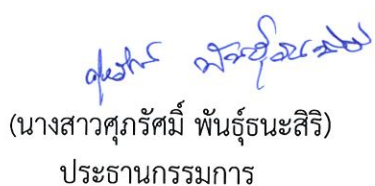 (นางสาวศุภรัศมิ์ พันธุ์ธนะสิริ)
ประธานกรรมการ